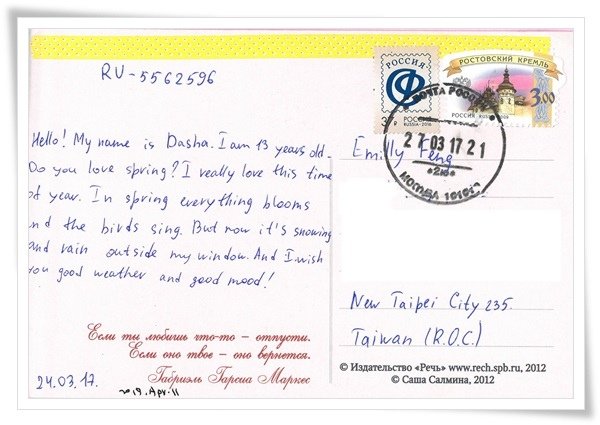 RU-5562596
РОССИЯ-
РОСТОВСКИЙ КРЕМЛЬ
3.00
РОССИЯ
ПОЧТА РОССИИ
27 03 17 21
МОСКВА
Hello! My name is Dasha. I am 13 years old.
Do you love spring? I really love this time
of year. In spring everything blooms
nd the birds sing. But now it's snowing
and rain outside my window. And I wish
you good weather and good mood!
Если ты любишь что-то – отпусти.
Если оно твое – оно вернется.
Габриэль Гарсиа Маркес
24.03.17.
2019.Apr.11
Emilly Feng
New Taipei City 235.
Taiwan (R.O.C.)
© Издательство «Речь» www.rech.spb.ru, 2012
© Саша Салмина, 2012